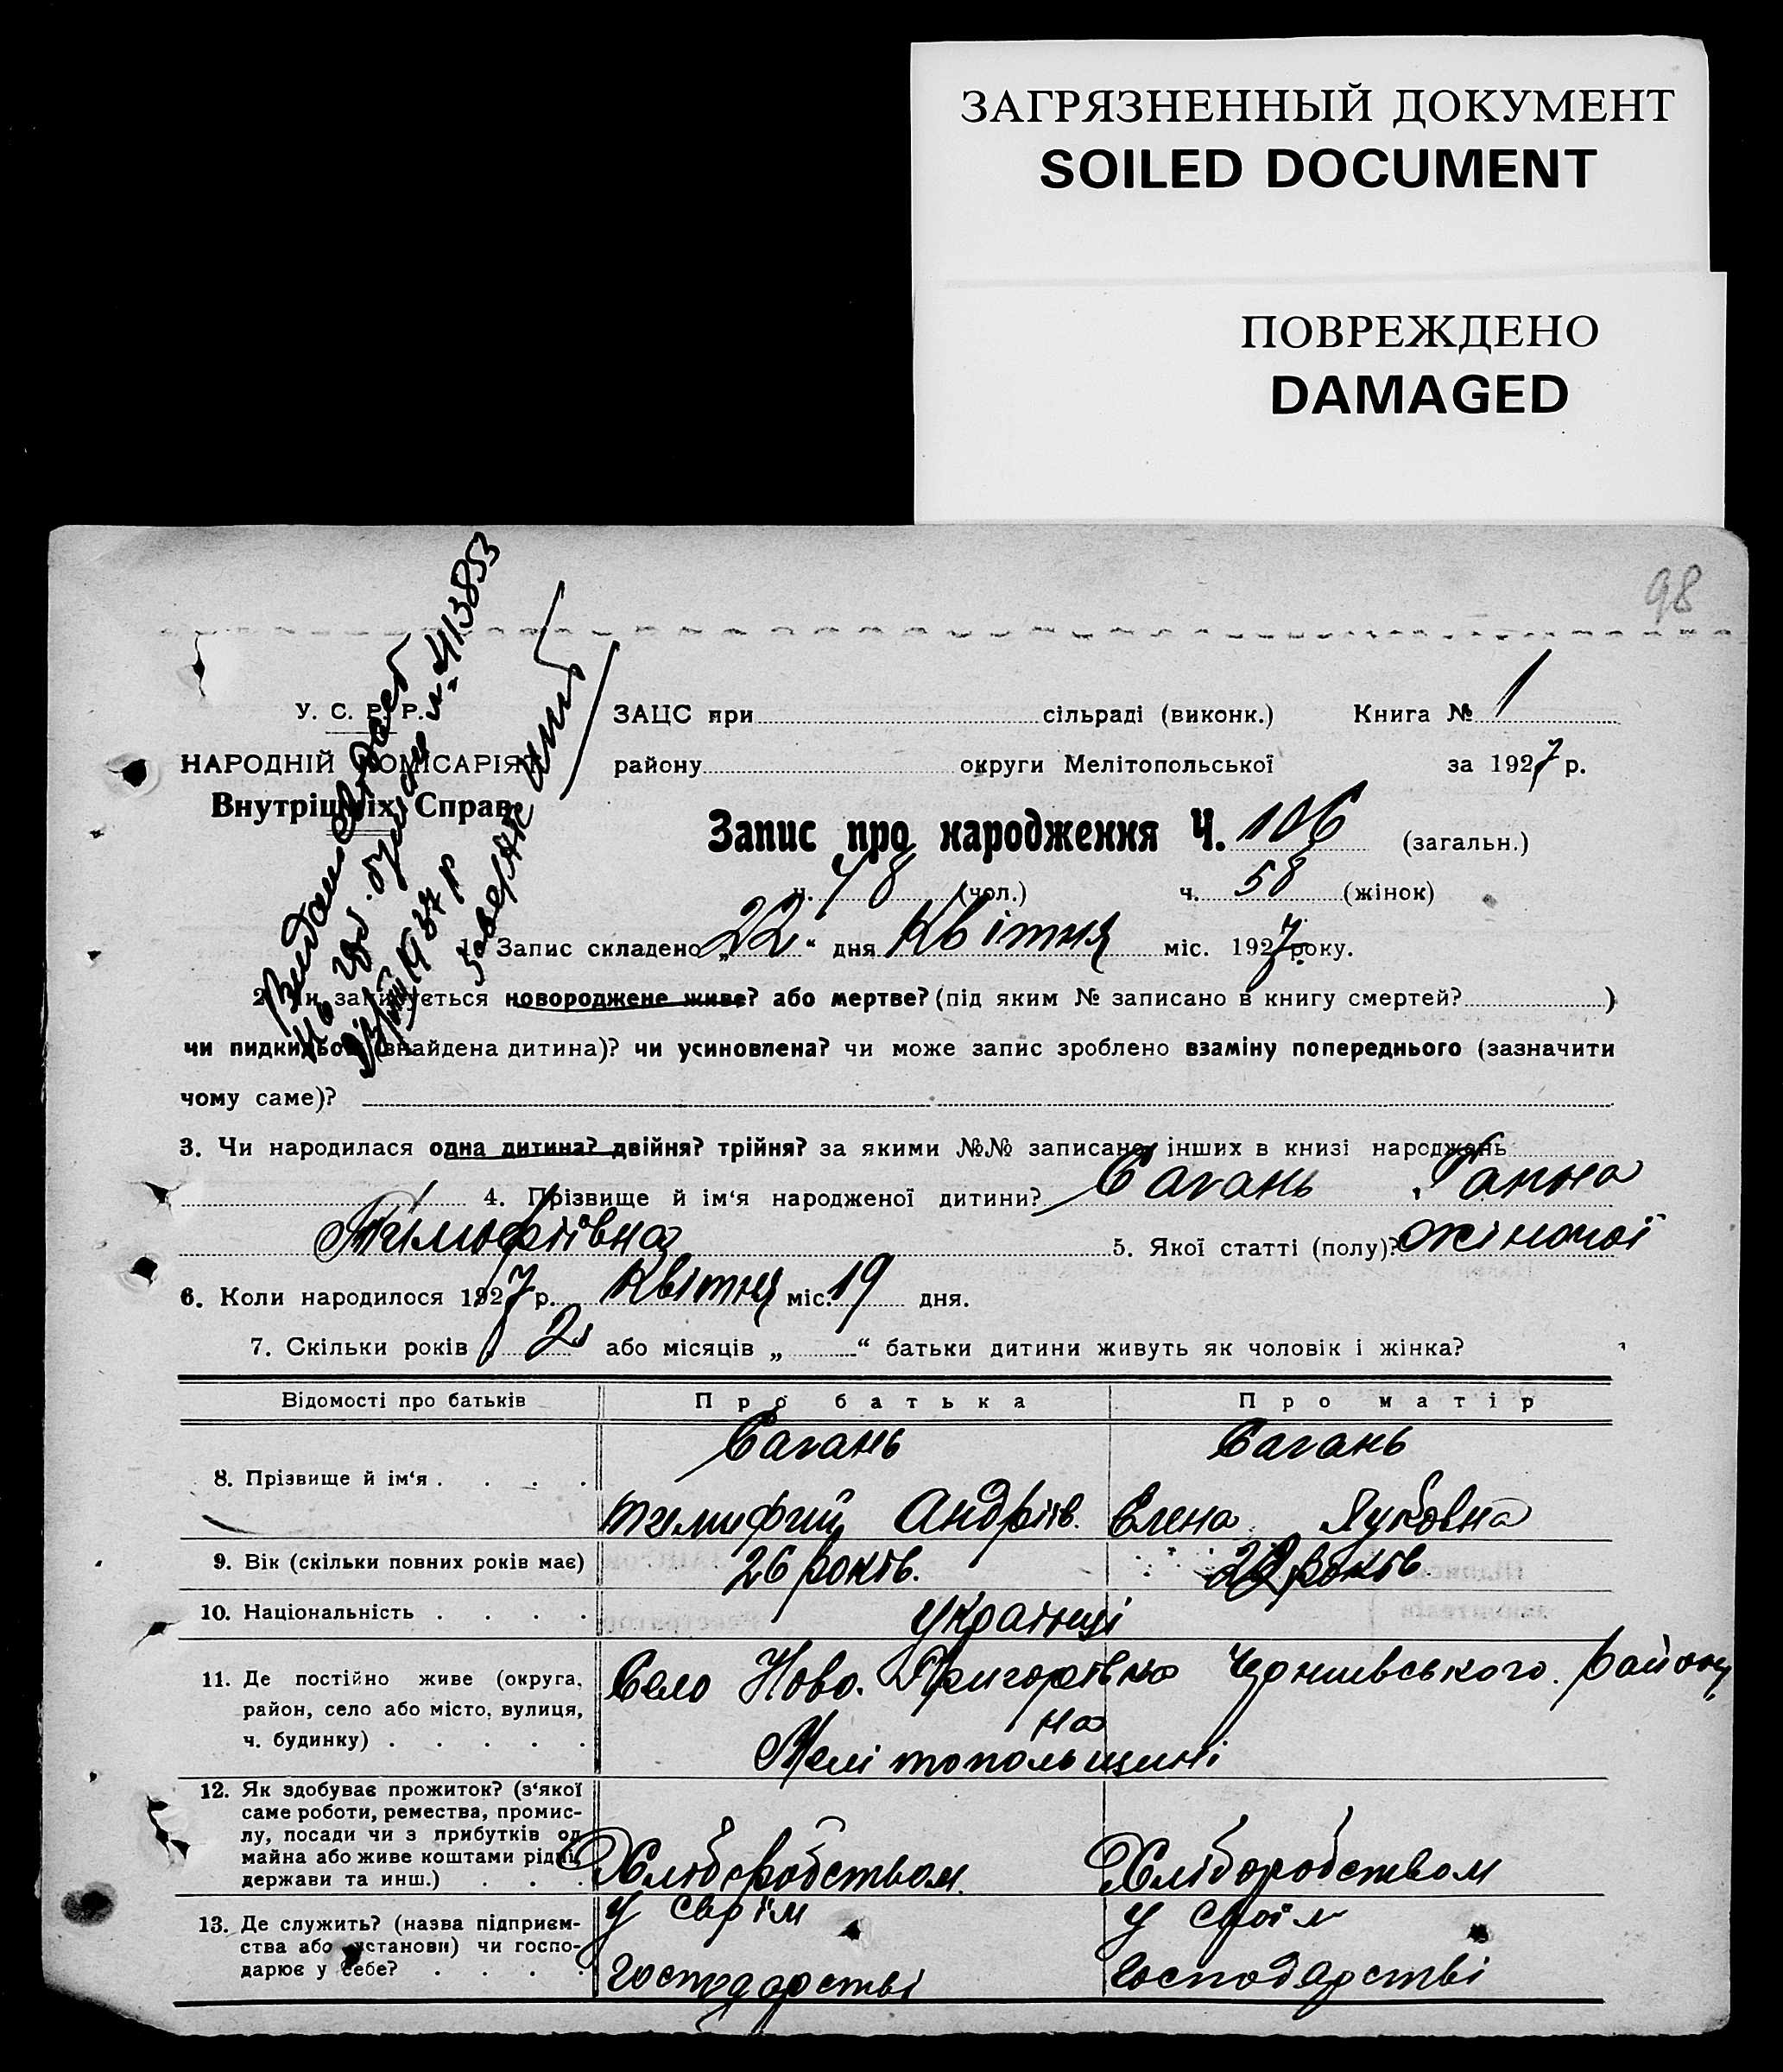 ЗАГРЯЗНЕННЫЙ ДОКУМЕНТ
SOILED DOCUMENT
ПОВРЕЖДЕНО
DAMAGED
98
№ 413853
1937 р
У. С. Р. Р.
НАРОДНІЙ КОМИСАРІЯТ
Внутрішніх Справ
ЗАЦС при сільраді (виконк.) Книга № 1
району округи Мелітопольської за 1927 р.
Запис про народження Ч. 106 (загальн.)
ч. 48 (чол.) ч. 58 (жінок)
1. Запис складено „22“ дня Квітня міс. 1927 року.
2. Чи записується новороджене живе? або мертве? (під яким № записано в книгу смертей? )
чи пидкидьок (знайдена дитина)? чи усиновлена? чи може запис зроблено взаміну попереднього (зазначити
чому саме)?
3. Чи народилася одна дитина? двійня? трійня? за якими №№ записано інших в книзі народжень
4. Прізвище й ім‘я народженої дитини? Сагань Ганна
Тимофіівна 5. Якої статті (полу)? жіночої
6. Коли народилося 1927 р. Квітня міс. 19 дня.
7. Скільки років „ 2 або місяців „ “ батьки дитини живуть як чоловік і жінка?
Відомості про батьків Про батька Про матір
8. Прізвище й ім‘я . . . . Сагань Сагань
Тимифий Андріів. Елена Луковна
9. Вік (скільки повних років має) 26 років. років
10. Національність . . . . українці
11. Де постійно живе (округа, район, село або місто, вулиця, ч. будинку) . . . . .
Село Ново. Григорівка Чернивського району
на
Мелітопольщині
12. Як здобуває прожиток? (з‘якої
саме роботи, ремества, промис-
лу, посади чи з прибутків од
майна або живе коштами рідні,
держави та инш.) . . .
Хлібо робством. Хліборобством
13. Де служить? (назва підприєм-
ства або установи) чи госпо-
дарює у себе? . . . .
у своїм у своїм
господарстві господарстві